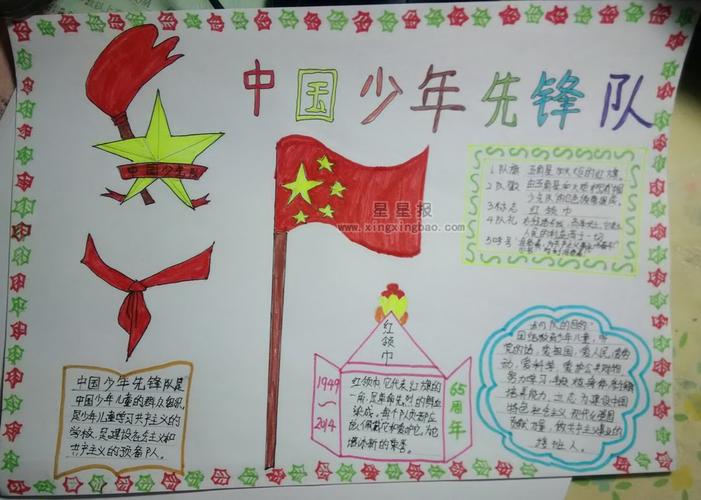 中国少年先锋队
中国少先队
星星报
www.xingxingbao.com
1队旗 五角星加火炬的红旗。
2队徽
3标志 红领巾
4队礼
人民的利益高于一切
5呼号
红领巾
1949~2014
红领巾它代表红旗的
一角,是革命先烈的鲜血
染成。每个队员都应
65周年
中国少年先锋队是
中国少年儿童的群众组织
是少年儿童学习共产主义的
学校,是建设社会主义和
共产主义的预备队。
团结教育少年儿童,听
党的话,爱祖国,爱人民,爱劳
动,爱科学
努力学习
培养能力,立志为建设中国
特色社会主义现代化强国
贡献力量,做共产主义事业的
接班人。